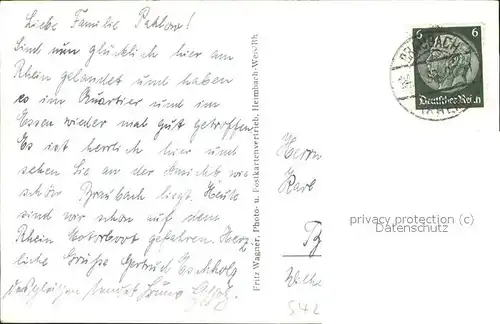 Liebe Familie Pahlow!
Sind nun glücklich hier am
Rhein gelandet und haben
es im Quartier und im
Essen wieder mal gut getroffen
Es ist herrlich hier und
sehen Sie an der Ansicht wie
schön Braubach liegt. Heute
sind wir schon auf dem
Rhein Motorboot gefahren. Herz
liche Grüße Gertrud
desgleichen sendet
Fritz Wagner, Photo- u. Postkartenvertrieb, Heimbach-Weis/Rh
6 6
Deutsches Reich
BRAUBACH
Herrn
Karl
privacy protection (c)
Datenschutz
Wilhe
542